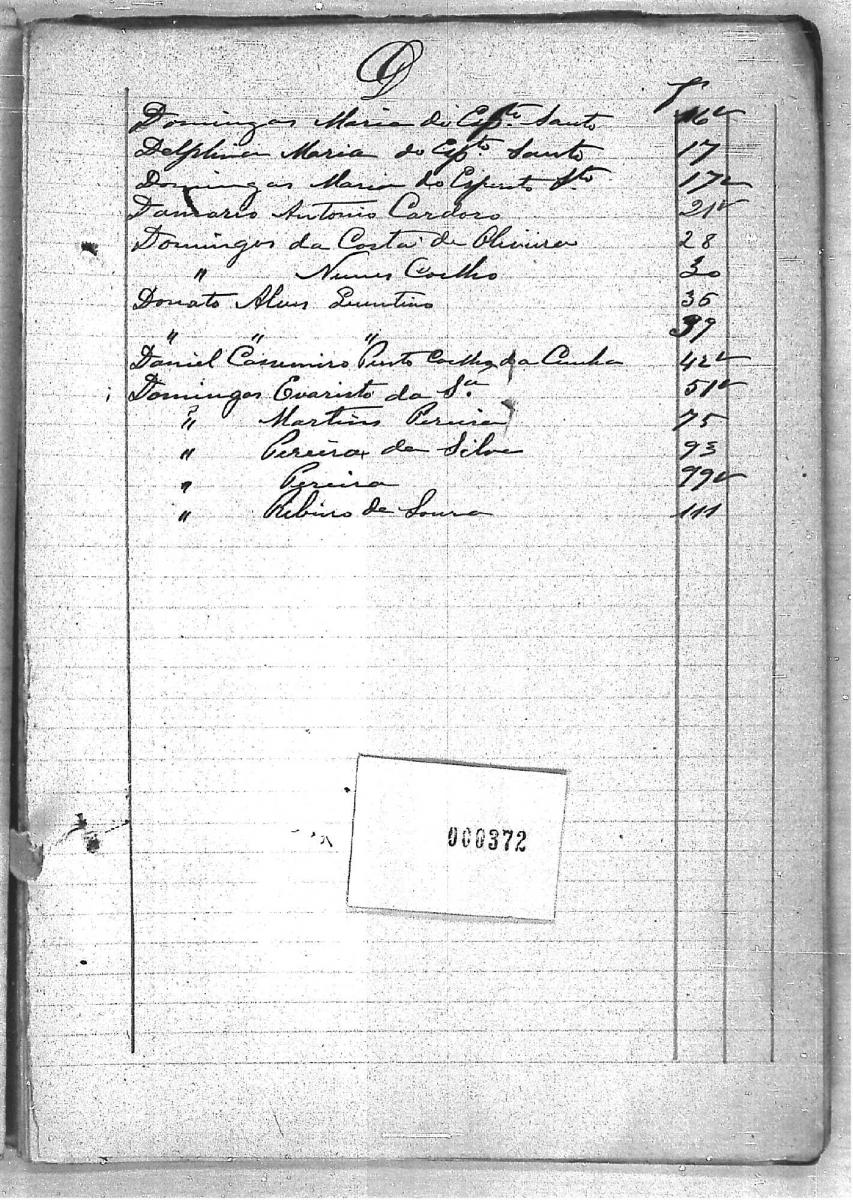 D
f
Domingas Maria do Esp.to Santo 16v
Delphina Maria do Esp.to Santo 17
Domingas Maria do Espirito Sto 17v
Damario Antonio Cardoso 21v
Domingos da Costa de Oliveira 28
" Nunes Coelho 30
Donato Alves 36
" " " 39
Daniel Casemiro Pinto Coelho da Cunha 42v
Domingos Evaristo da S.a 51v
" Martins Pereira 75
" Pereira da Silva 93
" Pereira 99v
" Ribeiro de Souza 111
000372